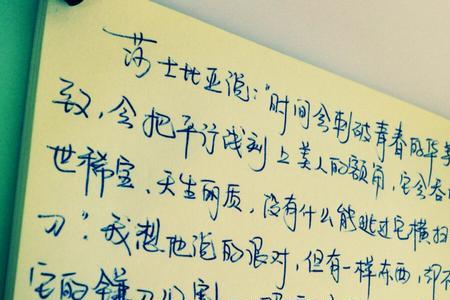 莎士比亚说:"时间会刺破青春的华
致,会把平行线刻上美人的额角,它会吞
世稀宝、天生丽质,没有什么能逃过它横扫
刀"。我想他说的很对,但有一样东西,却
它的镰刀